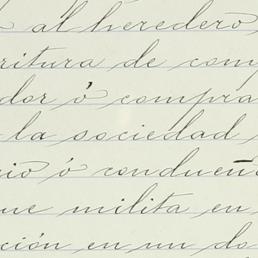 al heredero,
ritura de com
dor ó compra
la sociedad
rio ó condueñ
ue milita en
ción en un do